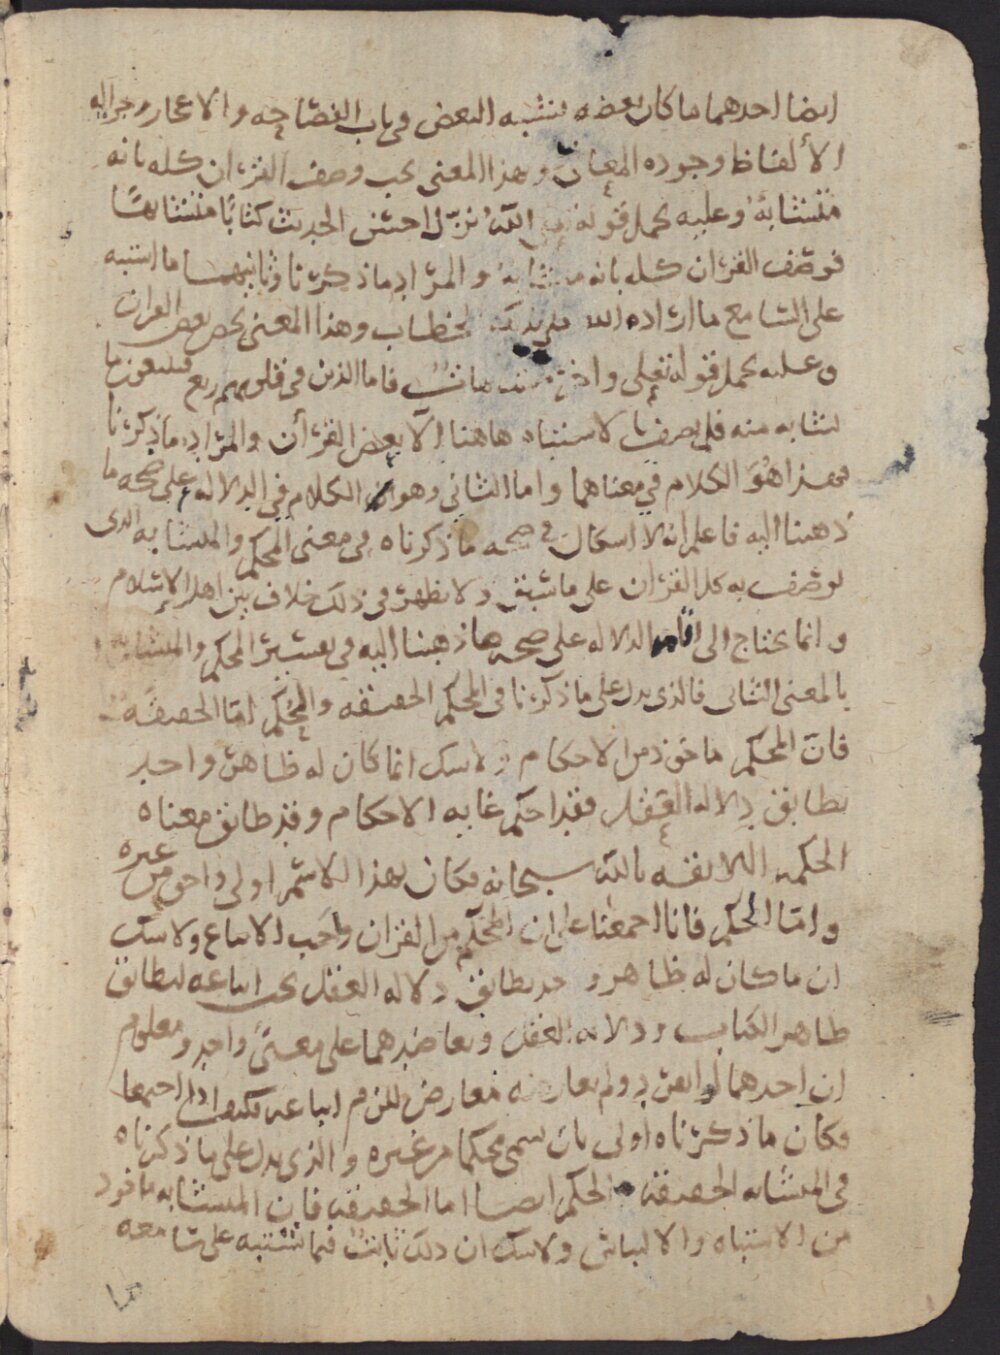 ايضا احدهما ما كان بعضه يشبه البعض في باب الفصاحه والاعجاز وجزاله
الألفاظ وجوده المعاني وهذا المعنى يجب وصف القرءان كله بانه
متشابهٌ وعليه يحمل قوله تعلى اللهُ نزّل احسَن الحديث كتابًا متشابهًا
فوصَف القرءان كله بانه متشابه والمرَاد ما ذكرنا وثانيهما ما اشتبه
على السَامع ما ارَاده الله الخطاب وهذا المعنى يخص بعض القران
وعليه يحمل قوله تعلى واخر متشابهات فاما الذين في قلوبهم زيغ فيتبعون ما
تشابه منه فلم يصف بالاشتباه هاهنا الا بعض القرءان والمرَاد ما ذكرنا
فهذا هُوَ الكلام في معناهما واما الثاني وهو الكلام في الدلاله على صحه ما
ذهبنا اليه فاعلم انه لا اشكال في صحه ما ذكرناه في معنى المحكم والمتشابه الذى
يوصَف به كل القرءان على ما سَبق ولا يظهر في ذلك خلاف بين اهل الاسْلام
وانما يحتاج الى اقامه الدلاله على صحه ما ذهبنا اليه في تفسير المحكم والمتشابه
بالمعنى الثانى فالذى يدل على ما ذكرنا فى المحكم الحقيقه والحُكم امّا الحقيقَه
فان المحكم ماخوذ من الاحكام ولا شك انما كان له ظاهر واحد
يطابق دلاله العقل فقد احكم غايه الاحكام وقد طابق معناه
الحكمه اللائقه بالله سبحانه فكان بهذا الاسْم اولى واحق من غيره
وامّا الحكم فانا اجمعنا على ان المحكم من القران واجب الاتباع ولا شك
ان ما كان له ظاهر وحد يطابق دلاله العقل يجب اتباعه لتطابق
ظاهر الكتاب ودلاله العقل وتعاضدهما على معنىً واحد ومعلوم
ان احدهما لو انفرد ولم يعارضه معارض للزم اتباعه فكيف اذا اجتمعا
فكان ما ذكرناه اولى بان يسمى محكما من غيره والذى يدل على ما ذكرناه
فى المتشابه الحقيقه والحكم ايضا اما الحقيقه فان المتشابه ماخوذ
من الاشتباه والالتباس ولا شك ان ذلك ثابتٌ فيما تشتبه على سَامعه